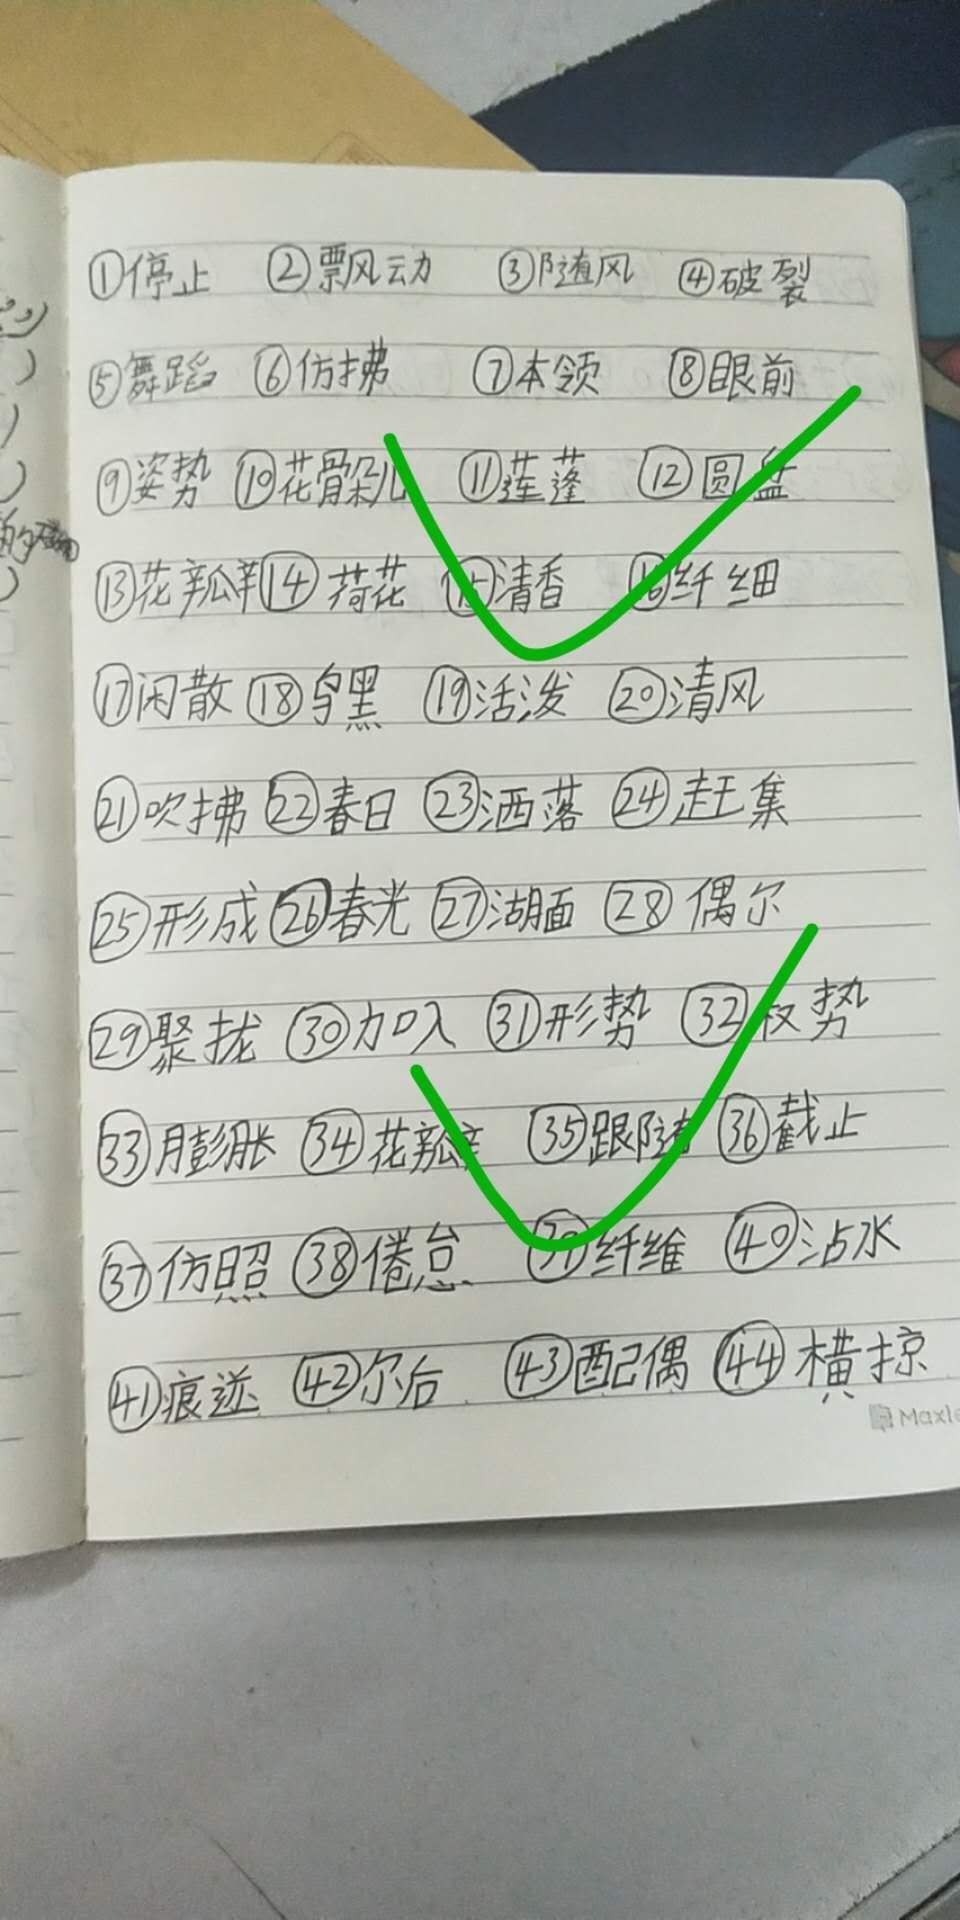 ①停止 ②飘动 ③随风 ④破裂
⑤舞蹈 ⑥仿拂 ⑦本领 ⑧眼前
⑨姿势 ⑩花骨朵儿 ⑪莲蓬 ⑫圆盘
⑬花瓣 ⑭荷花 ⑮清香 ⑯纤细
⑰闲散 ⑱乌黑 ⑲活泼 ⑳清风
㉑吹拂 ㉒春日 ㉓洒落 ㉔赶集
㉕形成 ㉖春光 ㉗湖面 ㉘偶尔
㉙聚拢 ㉚加入 ㉛形势 ㉜权势
㉝膨胀 ㉞花瓣 ㉟跟随 ㊱截止
㊲仿照 ㊳倦怠 ㊴纤维 ㊵沾水
㊶痕迹 ㊷尔后 ㊸配偶 ㊹横掠
Maxle